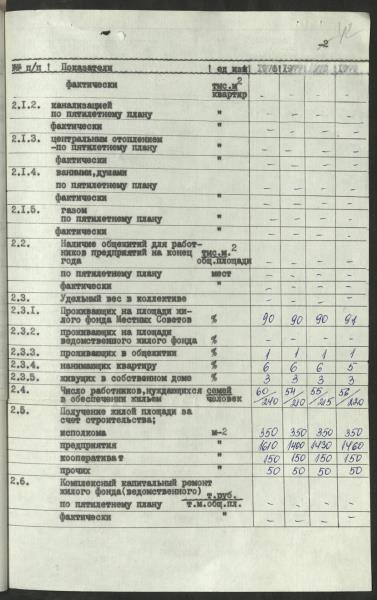 -2
№ п/п ! Показатели ! ед изм! 1976! 1977!
фактически тыс.м2
квартир - - - -
2.I.2. канализацией
по пятилетнему плану " - - - -
фактически " - - - -
2.I.3. центральным отоплением
-по пятилетнему плану " - - - -
фактически " - - - -
2.I.4. ваннами,душами
по пятилетнему плану " - - - -
фактически " - - - -
2.I.5. газом
по пятилетнему плану " - - - -
фактически " - - - -
2.2. Наличие общежитий для работ-
ников предприятий на конец тыс.м.2
года общ.площади - - - -
по пятилетнему плану мест - - - -
фактически " - - - -
2.3. Удельный вес в коллективе - - - -
2.3.I. Проживающих на площади жи-
лого фонда Местных Советов % 90 90 90 91
2.3.2. проживающих на площади
ведомственного жилого фонда % - - - -
2.3.3. проживающих в общежитии % 1 1 1 1
2.3.4. нанимающих квартиру % 6 6 6 5
2.3.5. живущих в собственном доме % 3 3 3 3
2.4. Число работников,нуждающихся семей 60 54 55
в обеспечении жильем человек 240 210 215
2.5. Получение жилой площади за
счет строительства;
исполкома м-2 350 350 350 350
предприятия " 1610 1400 1430 1460
кооператива т " 150 150 150 150
прочих " 50 50 50 50
2.6. Комплексный капитальный ремонт
жилого фонда(ведомственного) т.руб.
по пятилетнему плану т.м.общ.пл. - - - -
фактически " - - - -